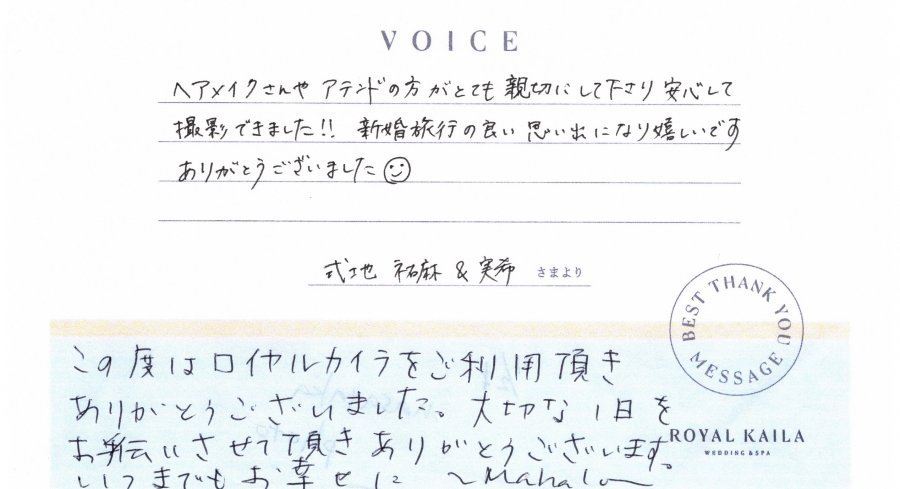 VOICE
ヘアメイクさんや アテンドの方 がとても 親切にして下さり 安心して
撮影できました!! 新婚旅行の良い 思い出になり嬉しいです
ありがとうございました
式地 祐麻 & 実希 さまより
BEST THANK YOU MESSAGE
この度はロイヤルカイラをご利用頂き
ありがとうございました。大切な1日を
お手伝いさせて頂きありがとうございます。
ROYAL KAILA
WEDDING & SPA
いつまでもお幸せに ~Mahalo~